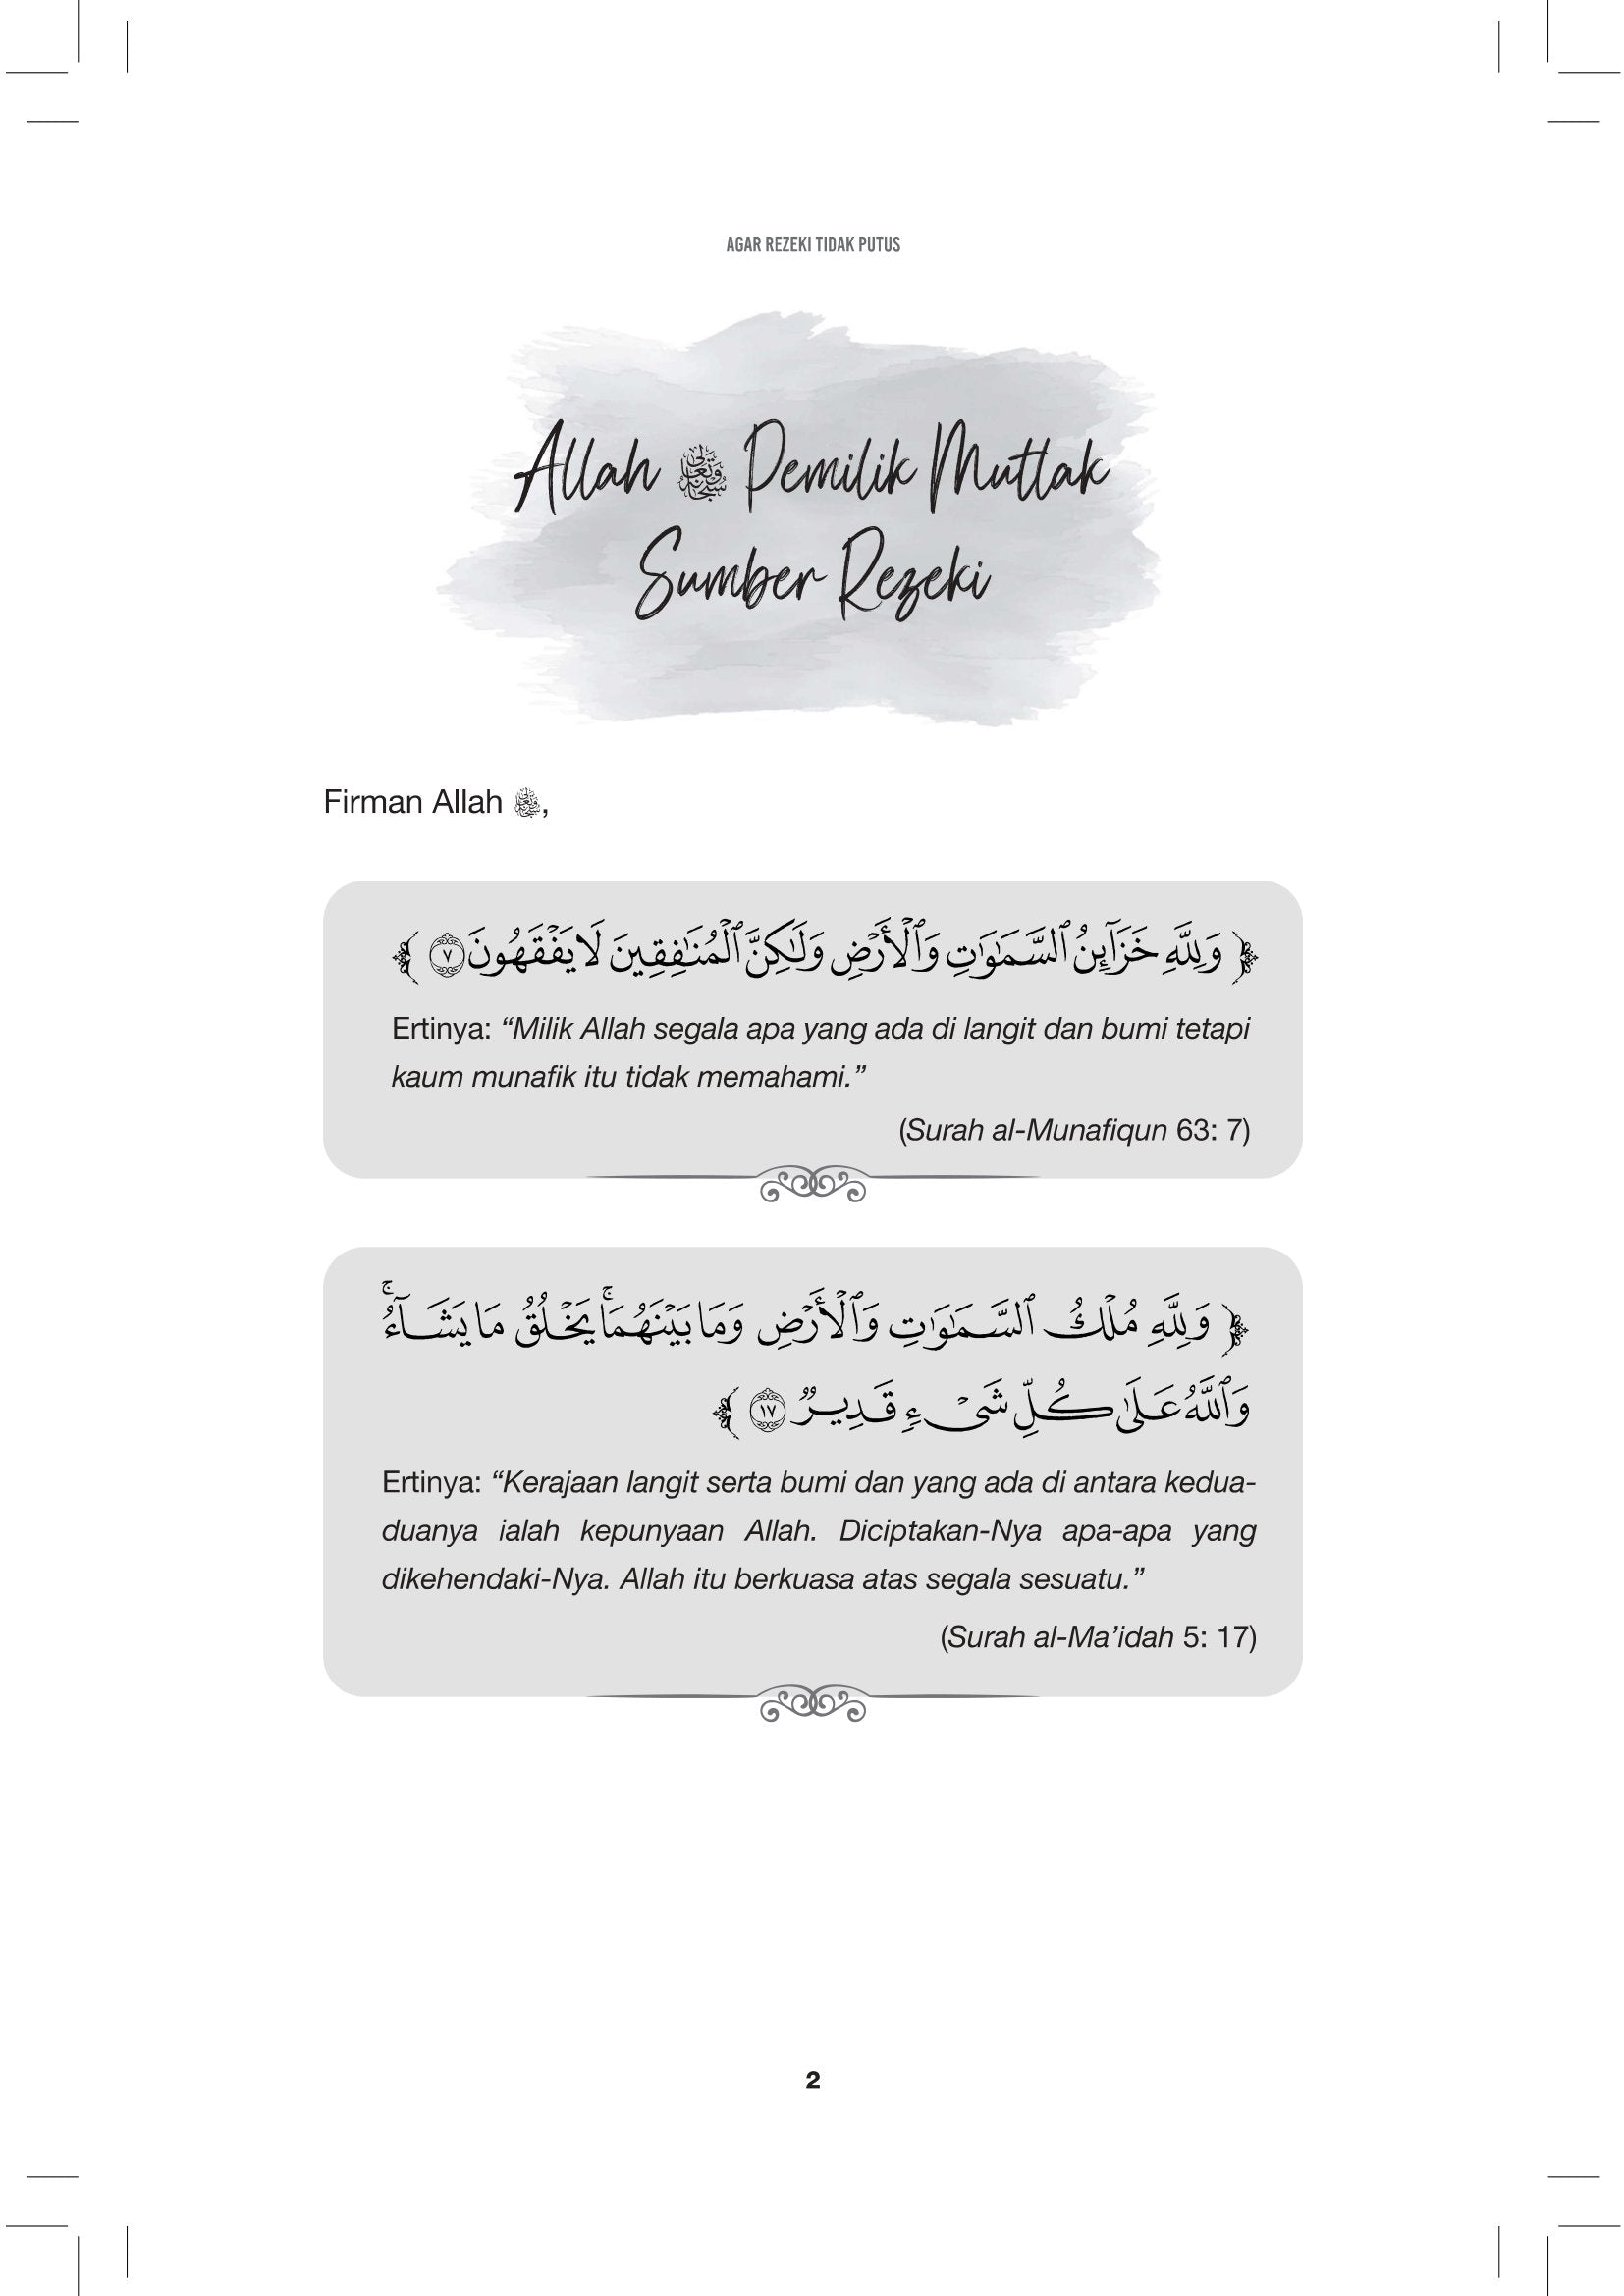 AGAR REZEKI TIDAK PUTUS
Allah سبحانه وتعالى Pemilik Mutlak
Sumber Rezeki
Firman Allah سبحانه وتعالى,
﴿ وَلِلَّهِ خَزَآئِنُ ٱلسَّمَٰوَٰتِ وَٱلْأَرْضِ وَلَٰكِنَّ ٱلْمُنَٰفِقِينَ لَا يَفْقَهُونَ ٧ ﴾
Ertinya: “Milik Allah segala apa yang ada di langit dan bumi tetapi
kaum munafik itu tidak memahami.”
(Surah al-Munafiqun 63: 7)
﴿ وَلِلَّهِ مُلْكُ ٱلسَّمَٰوَٰتِ وَٱلْأَرْضِ وَمَا بَيْنَهُمَاۚ يَخْلُقُ مَا يَشَآءُۚ
وَٱللَّهُ عَلَىٰ كُلِّ شَىْءٍ قَدِيرٌ ١٧ ﴾
Ertinya: “Kerajaan langit serta bumi dan yang ada di antara kedua-
duanya ialah kepunyaan Allah. Diciptakan-Nya apa-apa yang
dikehendaki-Nya. Allah itu berkuasa atas segala sesuatu.”
(Surah al-Ma’idah 5: 17)
2